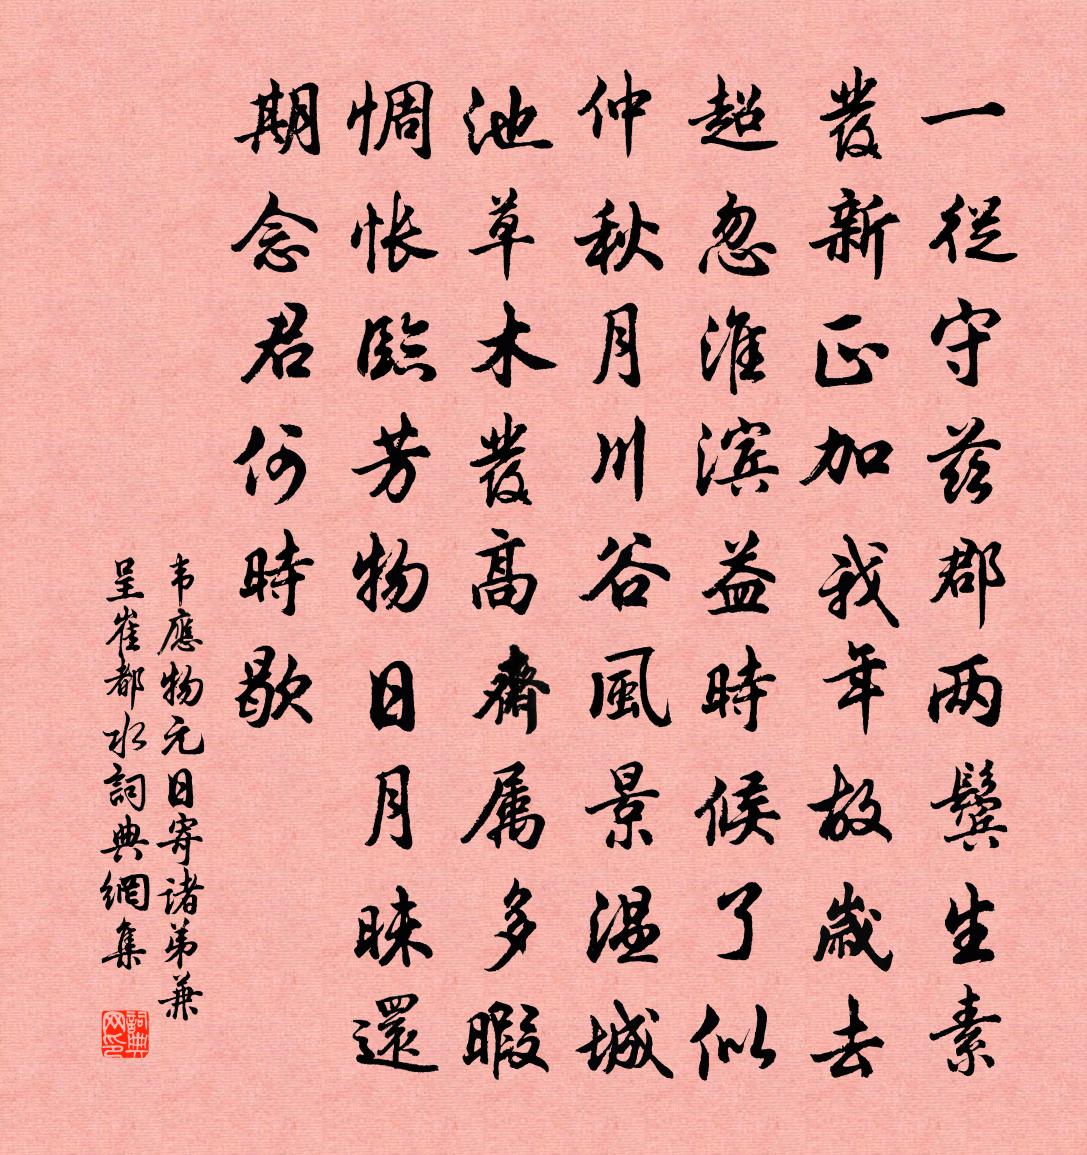 一從守兹郡两鬓生素
發新正加我年故歲去
超忽淮滨益時候了似
仲秋月川谷風景温城
池草木發高齋属多暇
惆怅臨芳物日月昧還
期念君何時歇
韦應物元日寄诸弟兼
呈崔都水詞典網集
詞典
网印